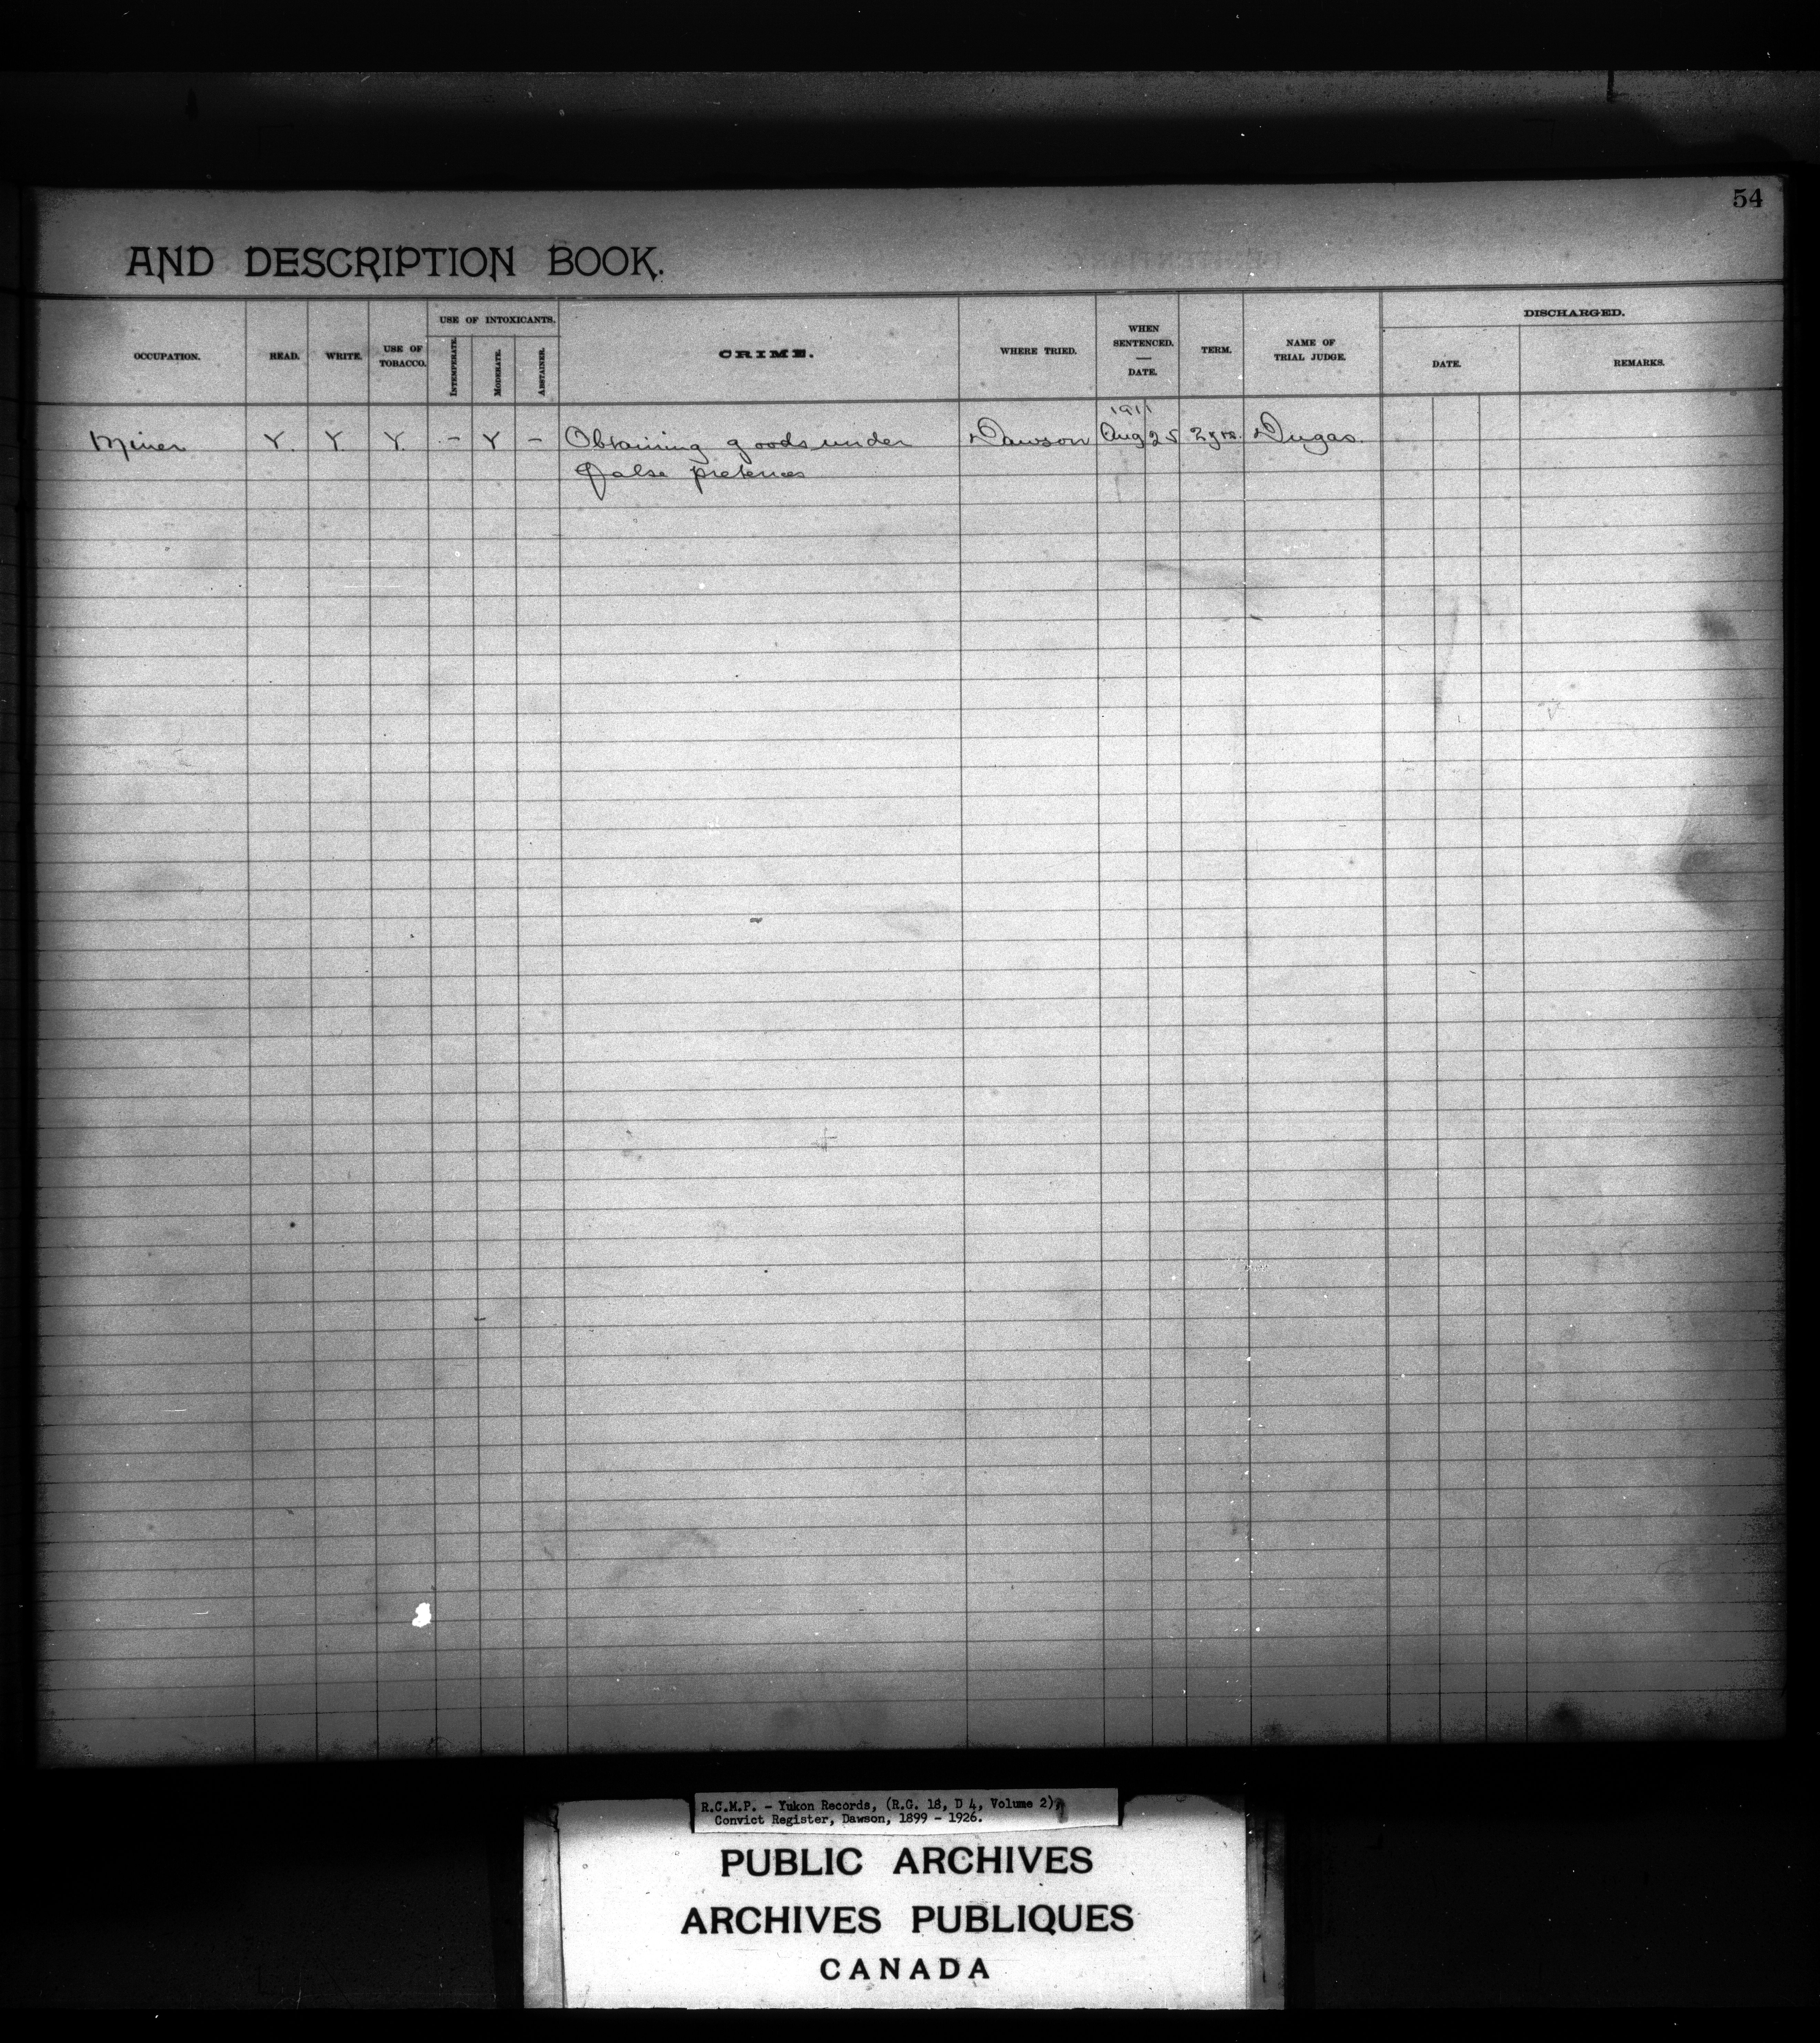 54
AND DESCRIPTION BOOK.
OCCUPATION. READ. WRITE. USE OF TOBACCO. USE OF INTOXICANTS. INTEMPERATE. MODERATE. ABSTAINER. CRIME. WHERE TRIED. WHEN SENTENCED. — DATE. TERM. NAME OF TRIAL JUDGE. DISCHARGED. DATE. REMARKS.
1911
Miner Y. Y. Y. - Y - Obtaining goods under Dawson Aug 25 2 yrs. Dugas.
false pretences
R.C.M.P. - Yukon Records, (R.G. 18, D 4, Volume 2),
Convict Register, Dawson, 1899 - 1926.
PUBLIC ARCHIVES
ARCHIVES PUBLIQUES
CANADA